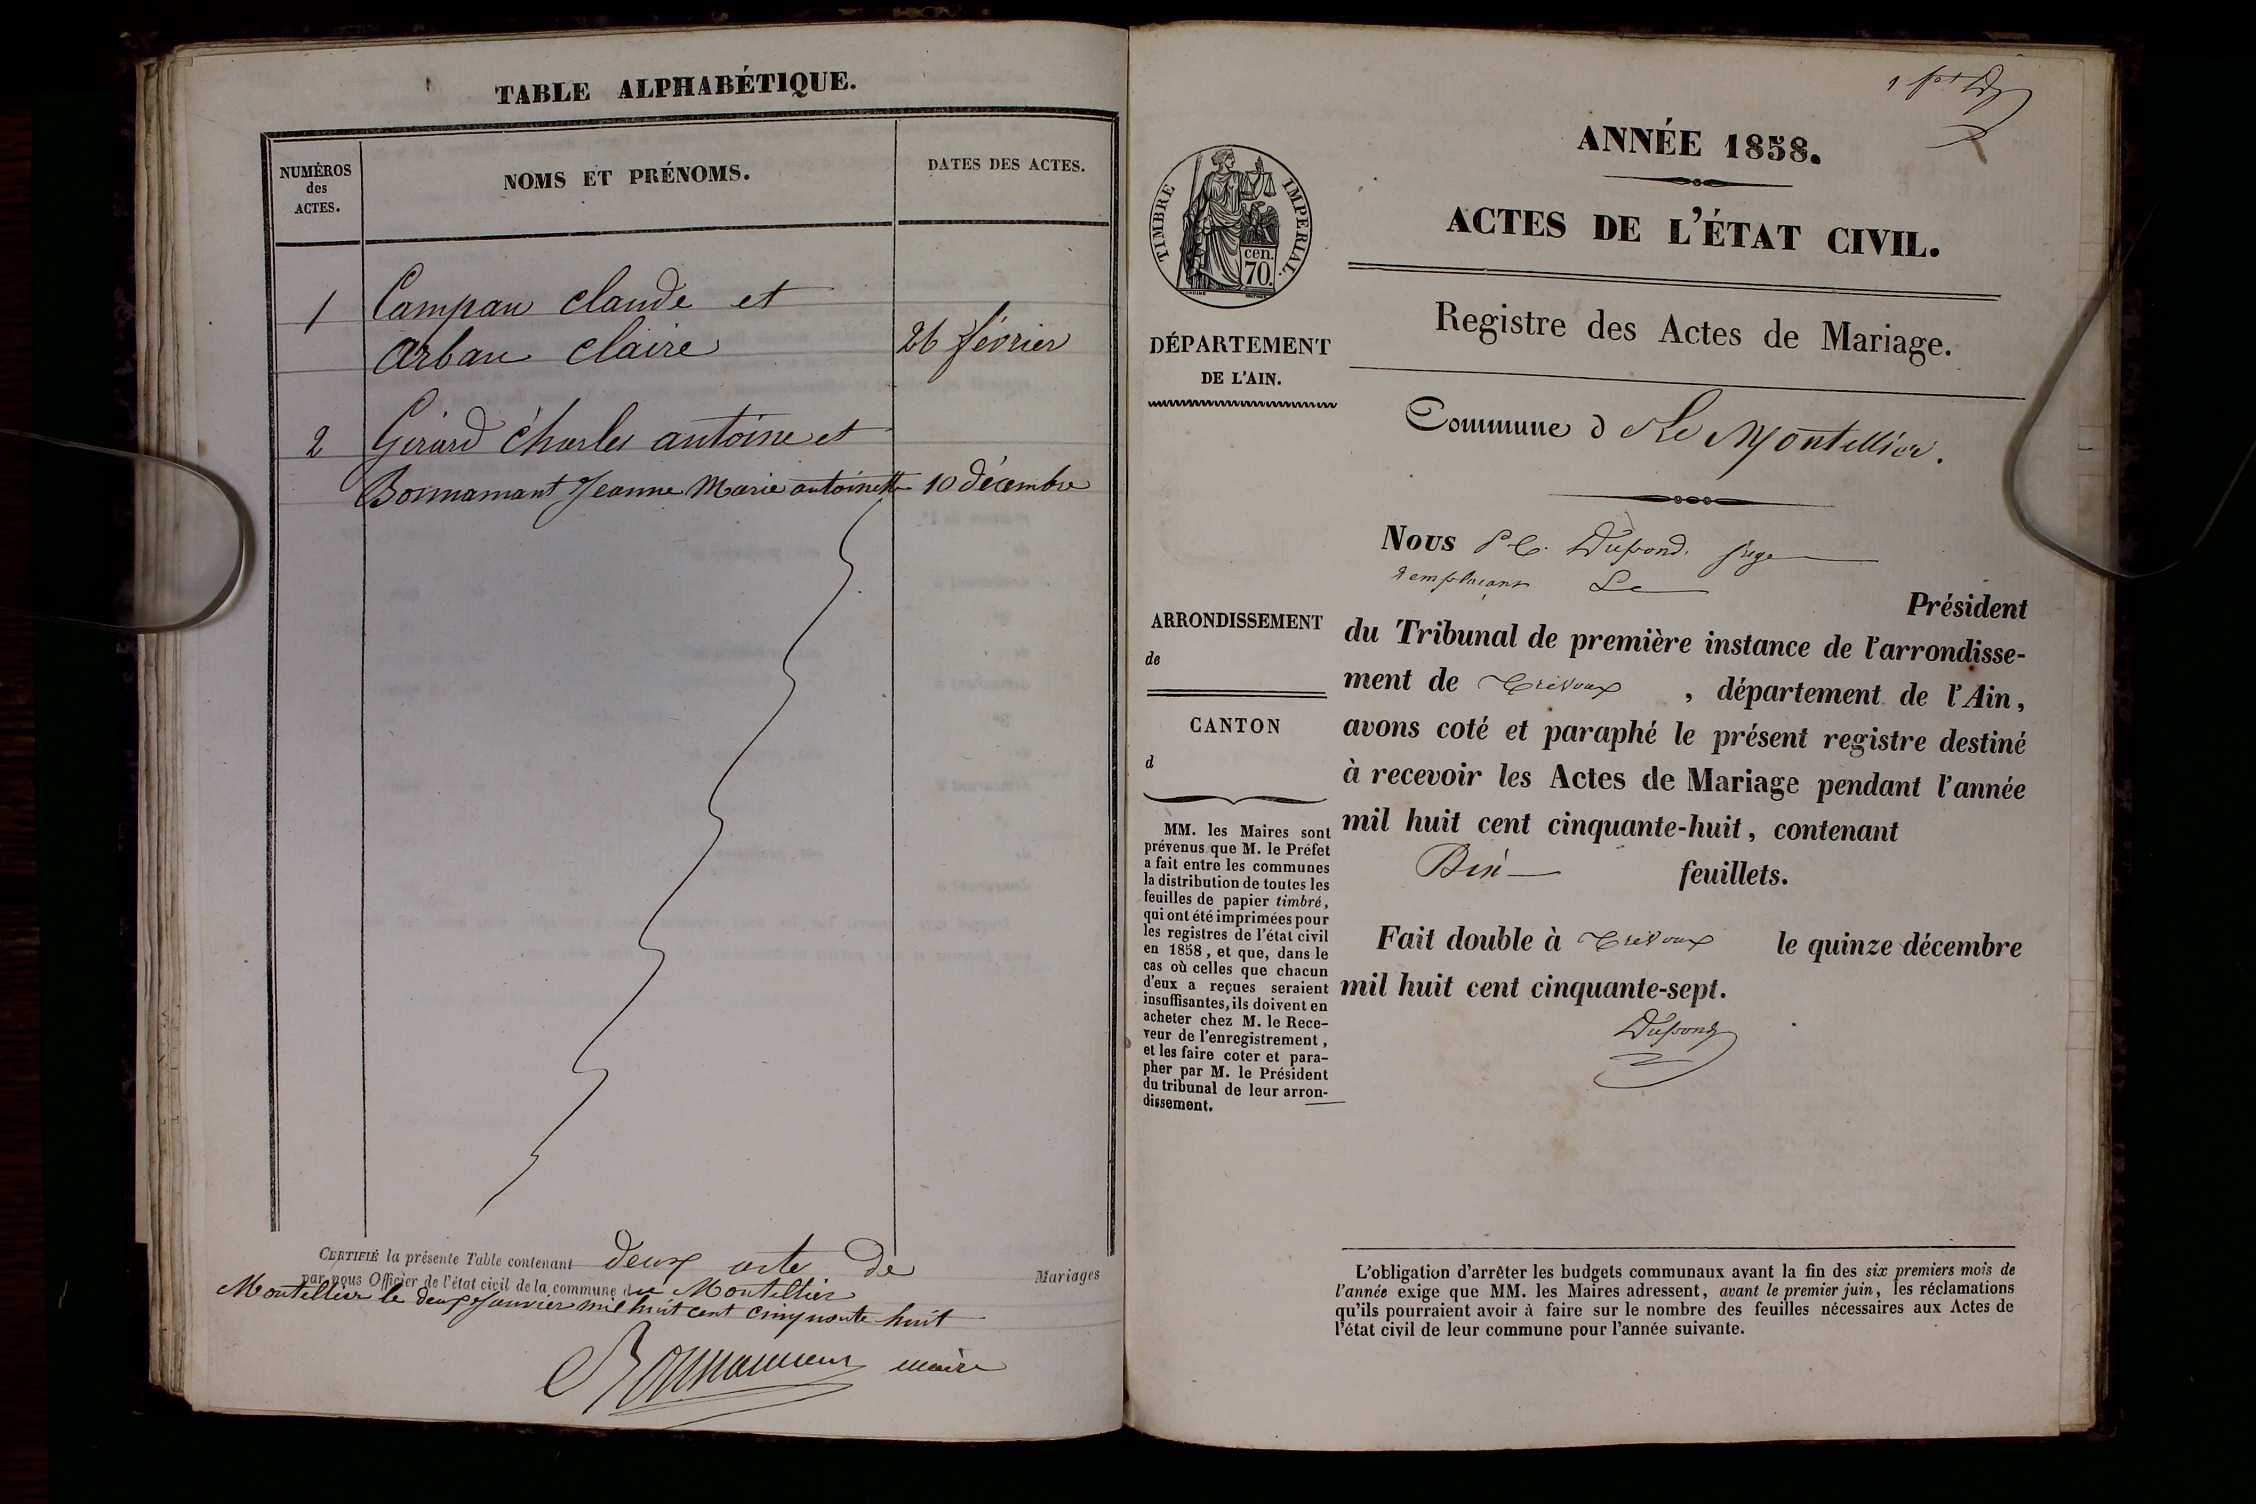 TABLE ALPHABÉTIQUE.
NUMÉROS
des
ACTES.
NOMS ET PRÉNOMS.
DATES DES ACTES.
1 Campan Claude et
Arban Claire 26 février
2 Girard Charles antoine et
Bonnamant Jeanne Marie antoinette 10 décembre
CERTIFIÉ la présente Table contenant deux acte de Mariages
par nous Officier de l'état civil de la commune du Montellier
Montellier le deux Janvier mil huit cent cinquante huit
maire
ANNÉE 1858.
ACTES DE L'ÉTAT CIVIL.
Registre des Actes de Mariage.
TIMBRE IMPERIAL.
cen.
70.
DÉPARTEMENT
DE L'AIN.
Commune d Le Montellier.
Nous P. C. Dupond. juge
remplaçant Le
Président
ARRONDISSEMENT
de
CANTON
d
du Tribunal de première instance de l'arrondisse-
ment de Trévoux , département de l'Ain,
avons coté et paraphé le présent registre destiné
à recevoir les Actes de Mariage pendant l'année
mil huit cent cinquante-huit, contenant
feuillets.
Fait double à Trévoux le quinze décembre
mil huit cent cinquante-sept.
Dupond
MM. les Maires sont
prévenus que M. le Préfet
a fait entre les communes
la distribution de toutes les
feuilles de papier timbré,
qui ont été imprimées pour
les registres de l'état civil
en 1858, et que, dans le
cas où celles que chacun
d'eux a reçues seraient
insuffisantes, ils doivent en
acheter chez M. le Rece-
veur de l'enregistrement,
et les faire coter et para-
pher par M. le Président
du tribunal de leur arron-
dissement.
L'obligation d'arrêter les budgets communaux avant la fin des six premiers mois de
l'année exige que MM. les Maires adressent, avant le premier juin, les réclamations
qu'ils pourraient avoir à faire sur le nombre des feuilles nécessaires aux Actes de
l'état civil de leur commune pour l'année suivante.